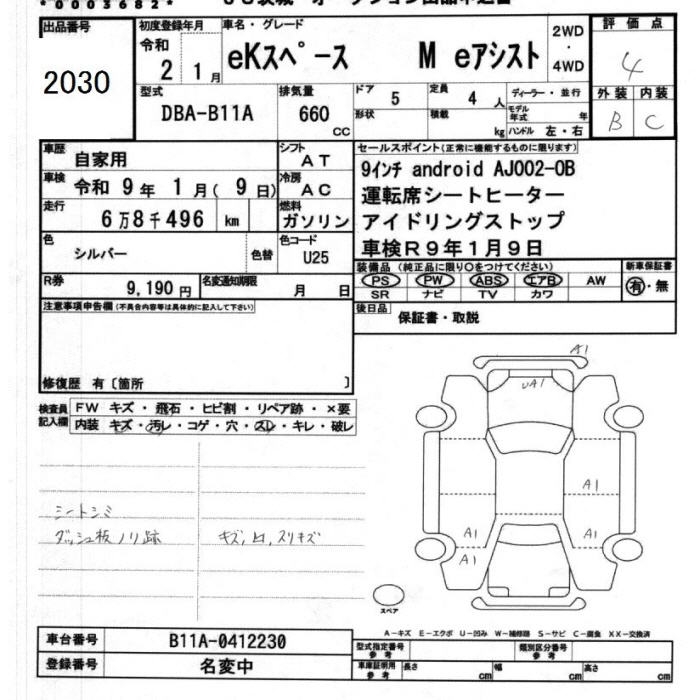 *0003682*
出品番号
2030
初度登録年月
令和
2 1月
車名・グレード
eKスペース M eアシスト
2WD
・
4WD
評価点
4
外装 内装
B C
型式
DBA-B11A
排気量
660
CC
ドア
5
定員
4 人
形状
積載
kg
ディーラー・並行
モデル年式 年
ハンドル 左・右
車歴
自家用
シフト
AT
車検
令和 9年 1月(9日)
冷房
AC
走行
6万8千496 km
燃料
ガソリン
色
シルバー
色替
色コード
U25
R券
9,190円
名変通知期限
月 日
セールスポイント(正常に機能するものに限ります)
9インチ android AJ002-OB
運転席シートヒーター
アイドリングストップ
車検R9年1月9日
装備品 (純正品に限り○をつけてください)
PS PW ABS エアB AW
SR ナビ TV カワ
新車保証書
有・無
後日品
保証書・取説
注意事項申告欄(不具合内容等は具体的に記入して下さい)
修復歴 有〔箇所 〕
検査員記入欄
FW キズ・飛石・ヒビ割・リペア跡・×要
内装 キズ・汚レ・コゲ・穴・スレ・キレ・破レ
シートシミ
ダッシュ板ノリ跡
キズ,凹,スリキズ
A1
UA1
A1
A1
A1
A1
スペア
A-キズ E-エクボ U-凹み W-補修跡 S-サビ C-腐食 XX-交換済
車台番号
B11A-0412230
登録番号
名変中
型式指定番号
参考
類別区分番号
参考
車庫証明用
参考
長さ cm
幅 cm
高さ cm